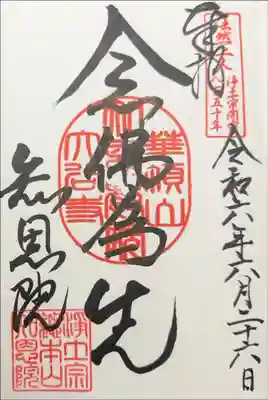 奉拝
法然上人
浄土宗開宗
八百五十年
令和六年六月二十六日
念佛為先
華頂山
大谷寺
知恩院
浄土宗
総本山
知恩院